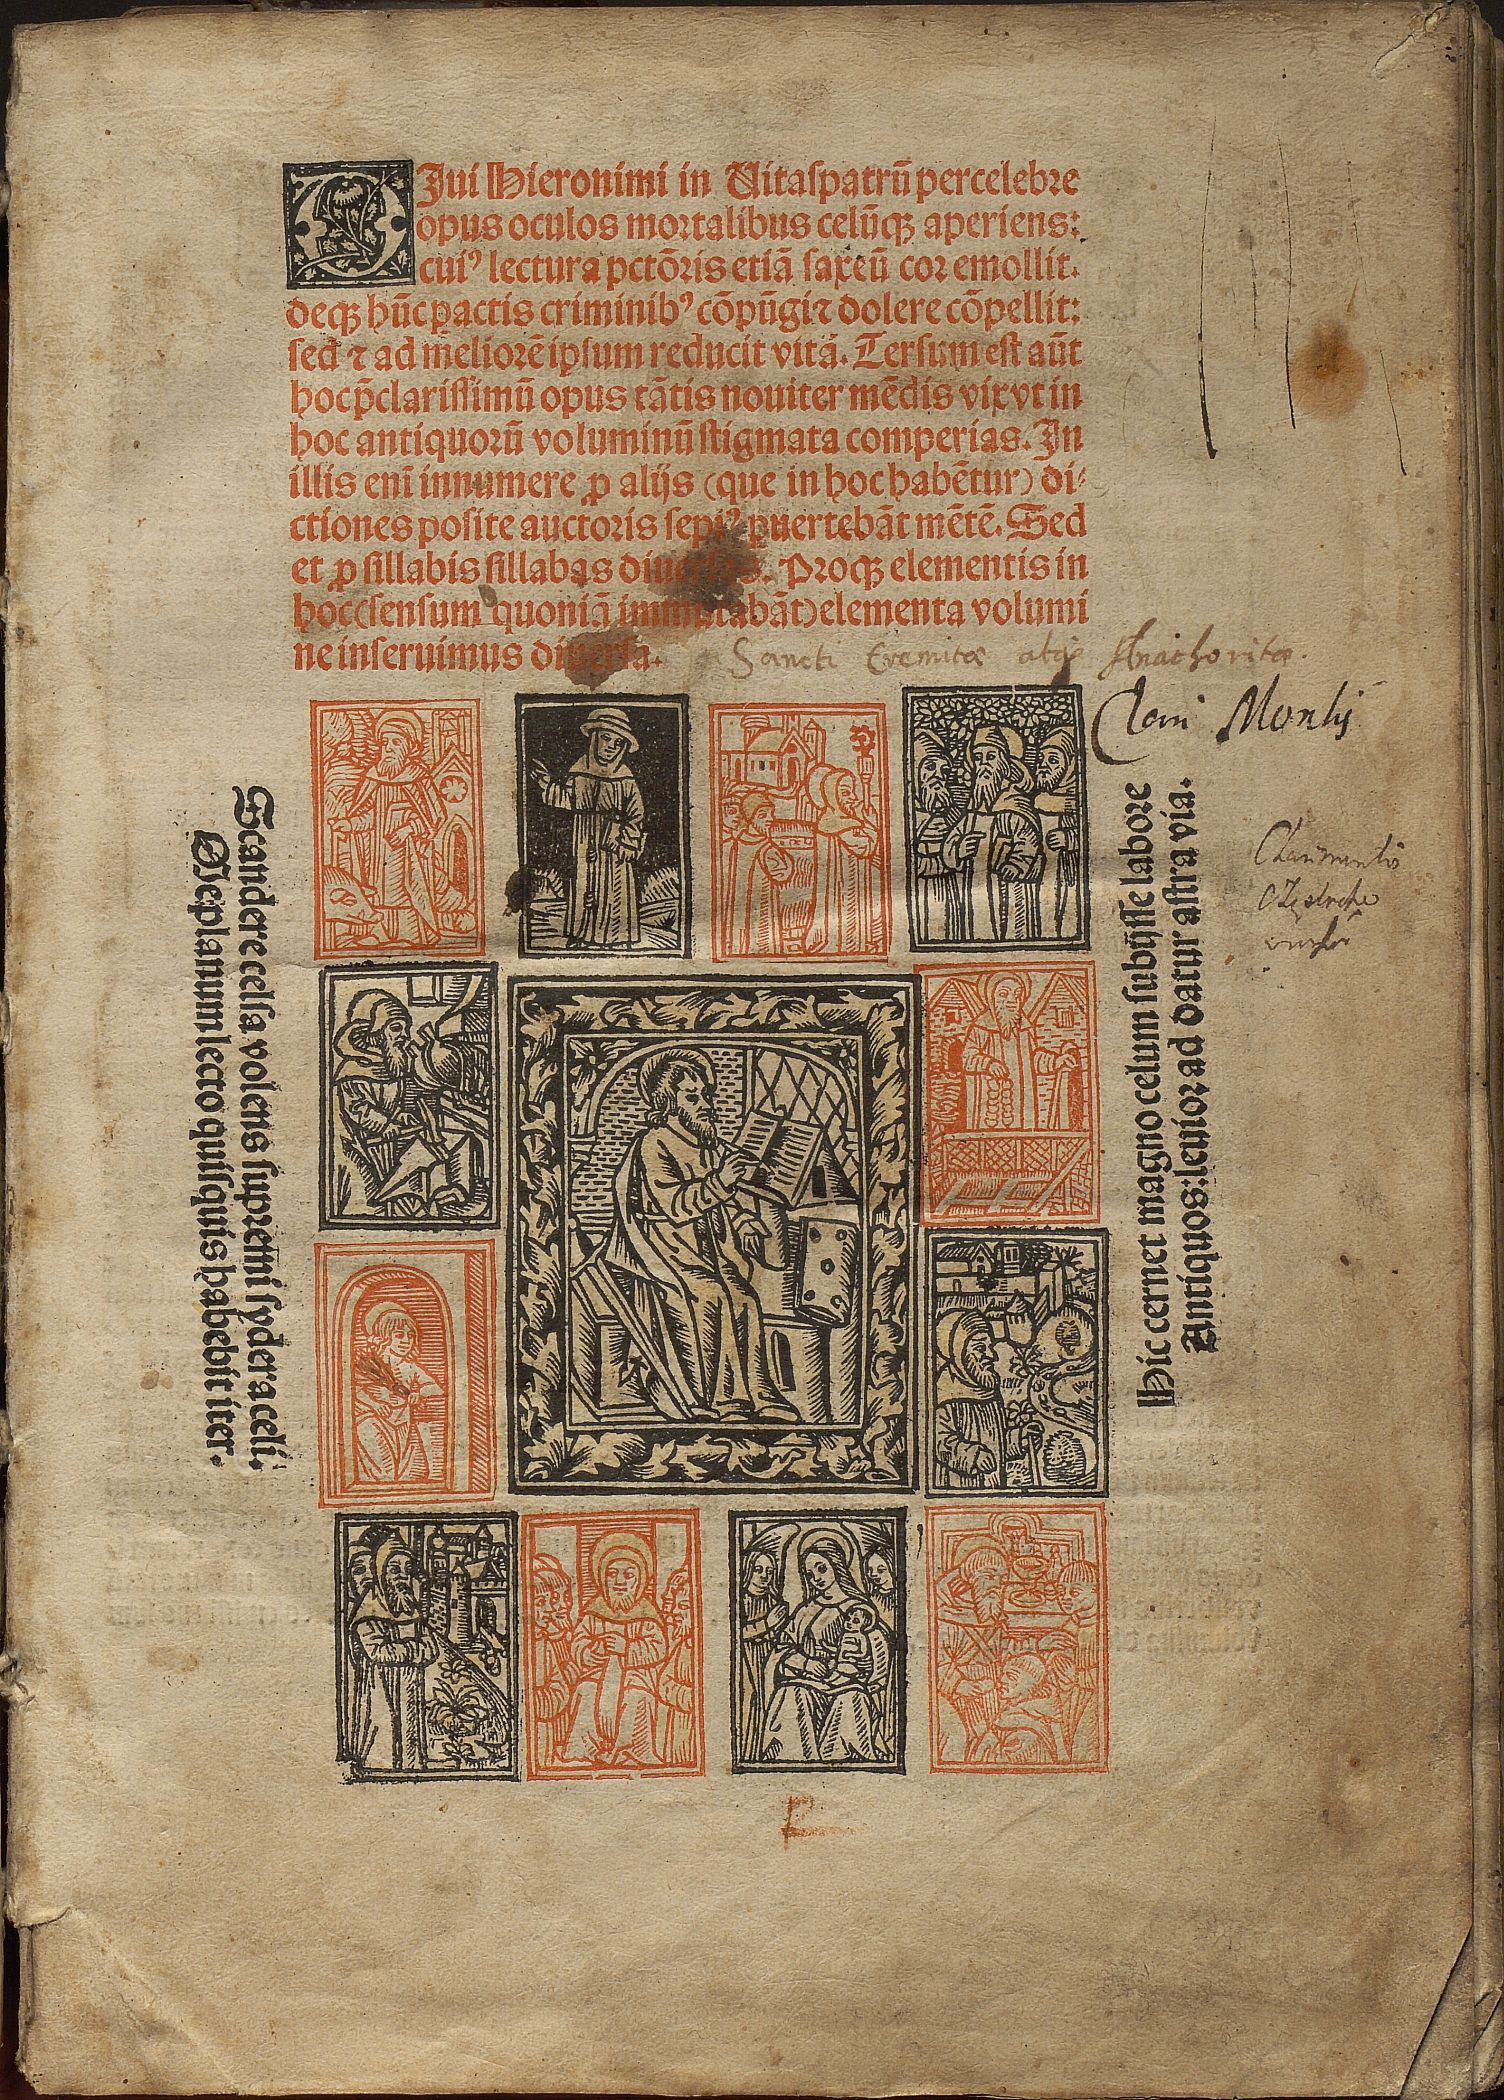 DJui Hieronimi in Uitaspatrū percelebre
opus oculos mortalibus celūqꝫ aperiens:
cuiꝰ lectura pctōris etiā saxeū cor emollit.
deqꝫ hūc ꝑactis criminibꝰ cōpūgi ⁊ dolere cōpellit:
sed ⁊ ad meliorē ipsum reducit vitā. Tersum est aūt
hoc p̄clarissimū opus tātis nouiter mēdis vix vt in
hoc antiquorū voluminū stigmata comperias. In
illis enī innumere ꝓ alijs (que in hoc habētur) di⸗
ctiones posite auctoris sepiꝰ ꝑuertebāt mētē. Sed
et ꝓ sillabis sillabas diuersas. Proqꝫ elementis in
hoc (sensum quoniā immutabāt) elementa volumi
ne inseruimus diuersa.
Sancti Eremitæ atqꝫ Anachoritæ.
Clari Montis
Scandere celsa volens supremi sydera celi.
Deplanum lecto quisquis habebit iter.
Hic cernet magno celum subijsse labore
Antiquos: leuior ad datur astra via.